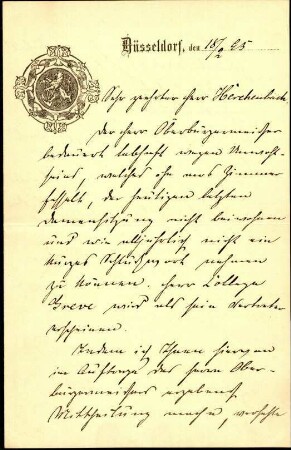 Düsseldorf, den 18/2 95
Sehr geehrter Herr Herchenbach,
Der Herr Oberbürgermeister
bedauert lebhaft wegen Unwohl-
seins, welches ihn ans Zimmer
fesselt, der heutigen letzten
Damensitzung nicht beiwohnen
und wie alljährlich nicht ein
kurzes Schlußwort nehmen
zu können. Herr College
Greve wird als sein Vertreter
erscheinen.
Indem ich Ihnen hiervon
im Auftrage des Herrn Ober-
bürgermeisters ergebenst
Mittheilung mache, verfehle